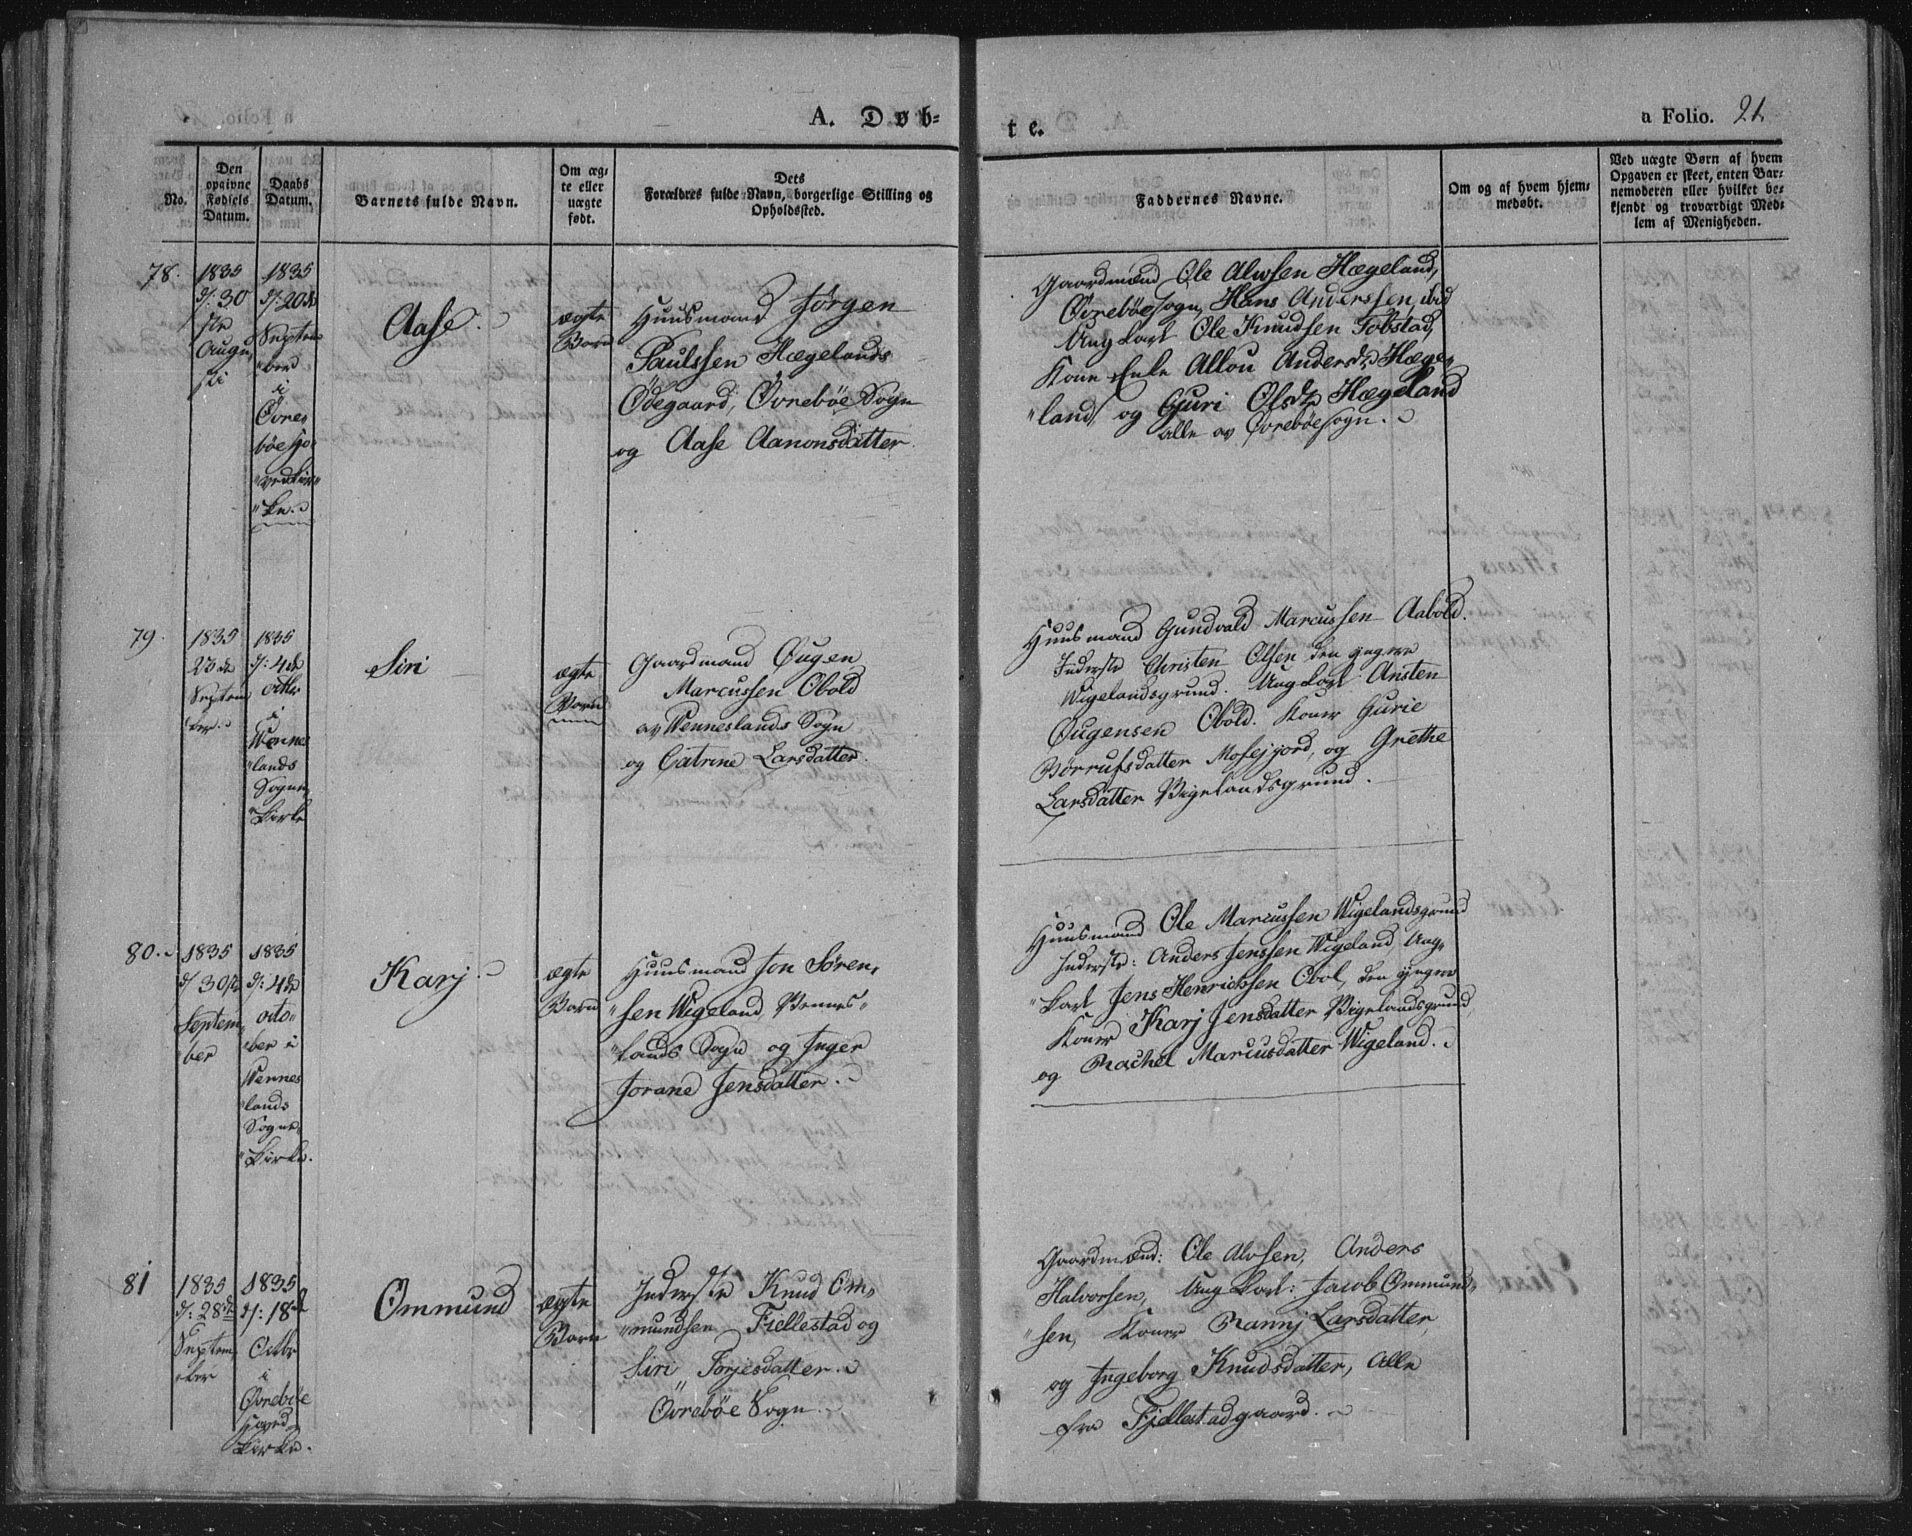 A. Døb-
te.
a Folio. 21.
No.
Den
opgivne
Fødsels
Datum.
Daabs
Datum.
Barnets fulde Navn.
Om æg-
te eller
uægte
født.
Dets
Forældres fulde Navn, borgerlige Stilling og
Opholdssted.
Faddernes Navne.
Om og af hvem hjem-
medøbt.
Ved uægte Børn af hvem
Opgaven er skeet, enten Bar-
nemoderen eller hvilket be-
kjendt og troværdigt Med-
lem af Menigheden.
78.
1835
d: 30
ste
Augu
sti
1835
d: 20de
Septem
ber
i
Øvre
bøe Ho
vedkir
ke.
Aase.
ægte
Barn
Huusmand Jørgen
Paulssen Hægelands
Ødegaard, Øvrebøe Sogn
og Aase Aanonsdatter.
Gaardmænd Ole Alvsen Hægeland,
Øvrebøesogn, Hans Anderssen, ibid
Ungkarl Ole Knudsen Tobstad,
Kone Enke Allou Andersdtr Hæge
land og Guri Olsdtr Hægeland
alle av Øvrebøesogn.
79.
1835
23de
Septem
ber.
1835
d: 4de
octbr
i
Wennes
lands
Sogne
kirke
Siri
ægte
Barn
Gaardmand Øugen
Marcussen Obold
av Wenneslands Sogn
og Catrine Larsdatter.
Huusmand Gundvald Marcussen Aabold.
Inderste Christen Olsen den yngere
Wigelandsgrund. Ungkarl Ansten
Øugensen Obold. Koner Gurie
Børrufsdatter Mosejjord, og Grethe
Larsdatter Vigelandsgrund.
80.
1835
d 30te
Septem
ber
1835
d: 4de
octo
ber i
Wennes
lands
Sogne
kirke.
Karj.
ægte
Barn
Huusmand Jon Søren
sen Wigeland, Vennes
lands Sogn og Inger
Jorane Jensdatter.
Huusmand Ole Marcussen Wigelandsgrund
Inderste: Anders Jenssen Wigeland, Ung
karl Jens Henrichsen Obol, den yngere
Koner Karj Jensdatter Vigelandsgrund,
og Rachel Marcusdatter Wigeland.
81
1835
d: 28de
Septem
ber
1835
d: 18de
Octbr
i
Øvrebøe
Hoved
kirke.
Ommund
ægte
Barn
Inderste Knud Om
mundsen Fiellestad og
Siri Torjesdatter.
Øvrebøe Sogn.
Gaardmænd: Ole Alvsen, Anders
Halvorsen, Ungkarl: Jacob Ommund
sen, Koner Rannj Larsdatter,
og Ingeborg Knudsdatter, Alle
fra Fjellestad gaard.